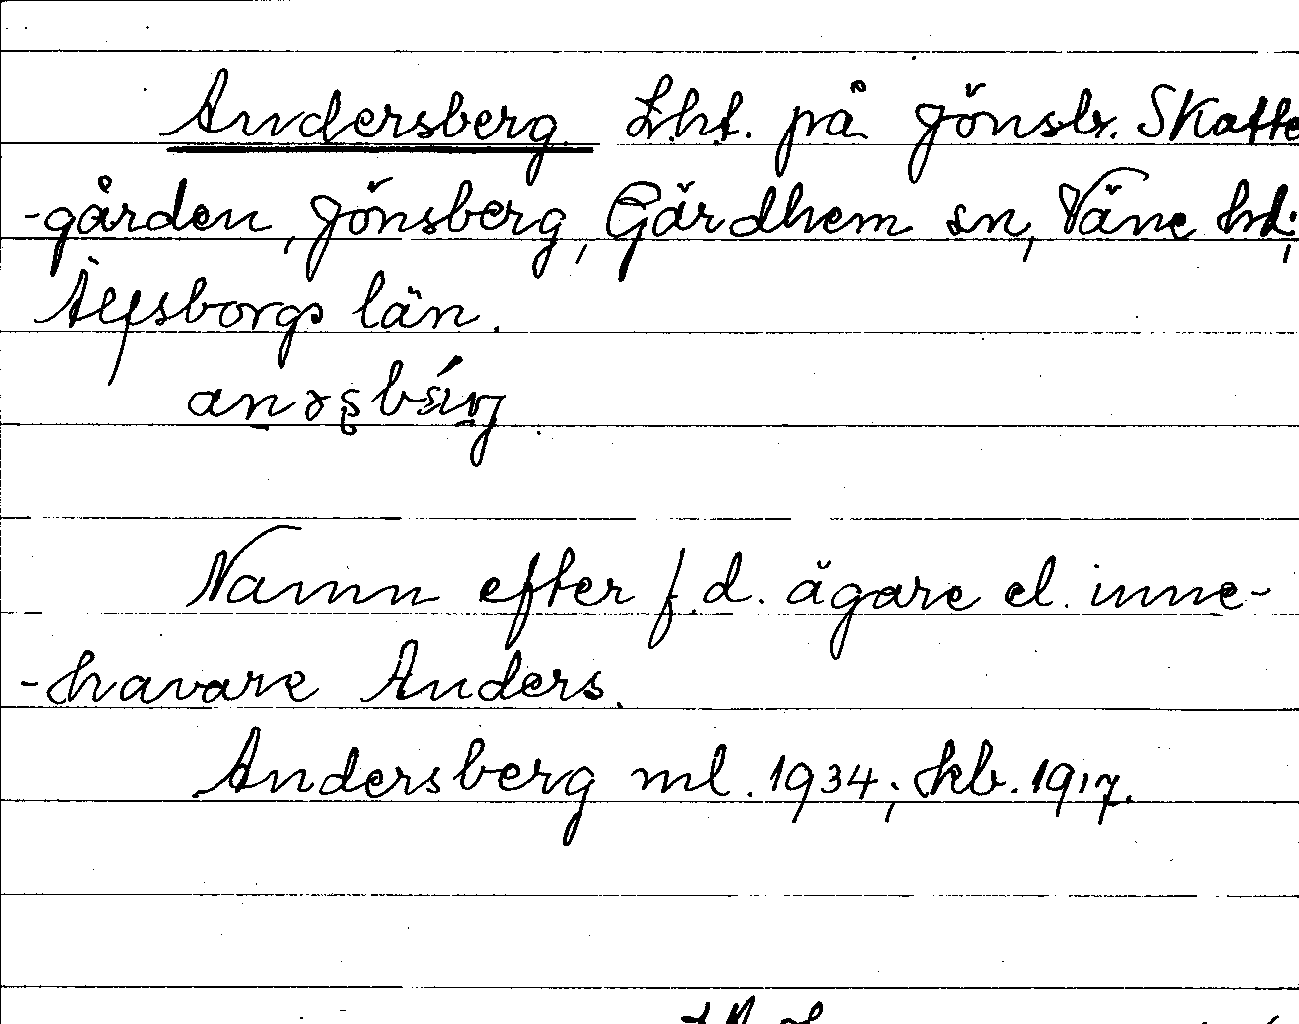 Andersberg. Lht. på Jönsb. Skatte
-gården, Jönsberg, Gärdhem sn, Väne hd;
Älfsborgs län.
Namn efter f.d. ägare el. inne-
-havare Anders.
Andersberg ml. 1934; kb. 1917.